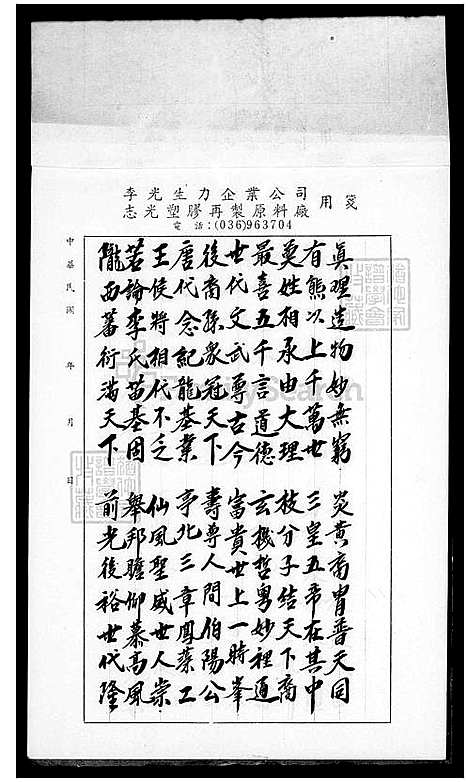 李光生力企業公司
志光塑膠再製原料廠 用箋
電話:(036)963704
中華民國 年 月 日
真理造物妙無窮 炎黃裔胄普天同
有熊以上千萬世 三皇五帝在其中
更姓相承由大理 枝分子結天下裔
最喜五千言道德 玄機哲男妙裡通
世代文武尊古今 富貴世上一時峯
後裔孫眾冠天下 壽尊人間伯陽公
唐代念紀龍基業 亭北三章鳳藻工
王侯將相代不乏 仙風聖威世人崇
若論李氏苗基因 舉邦瞻仰慕高風
隴西蕃衍滿天下 前光後裕世代隆
FamilySearch